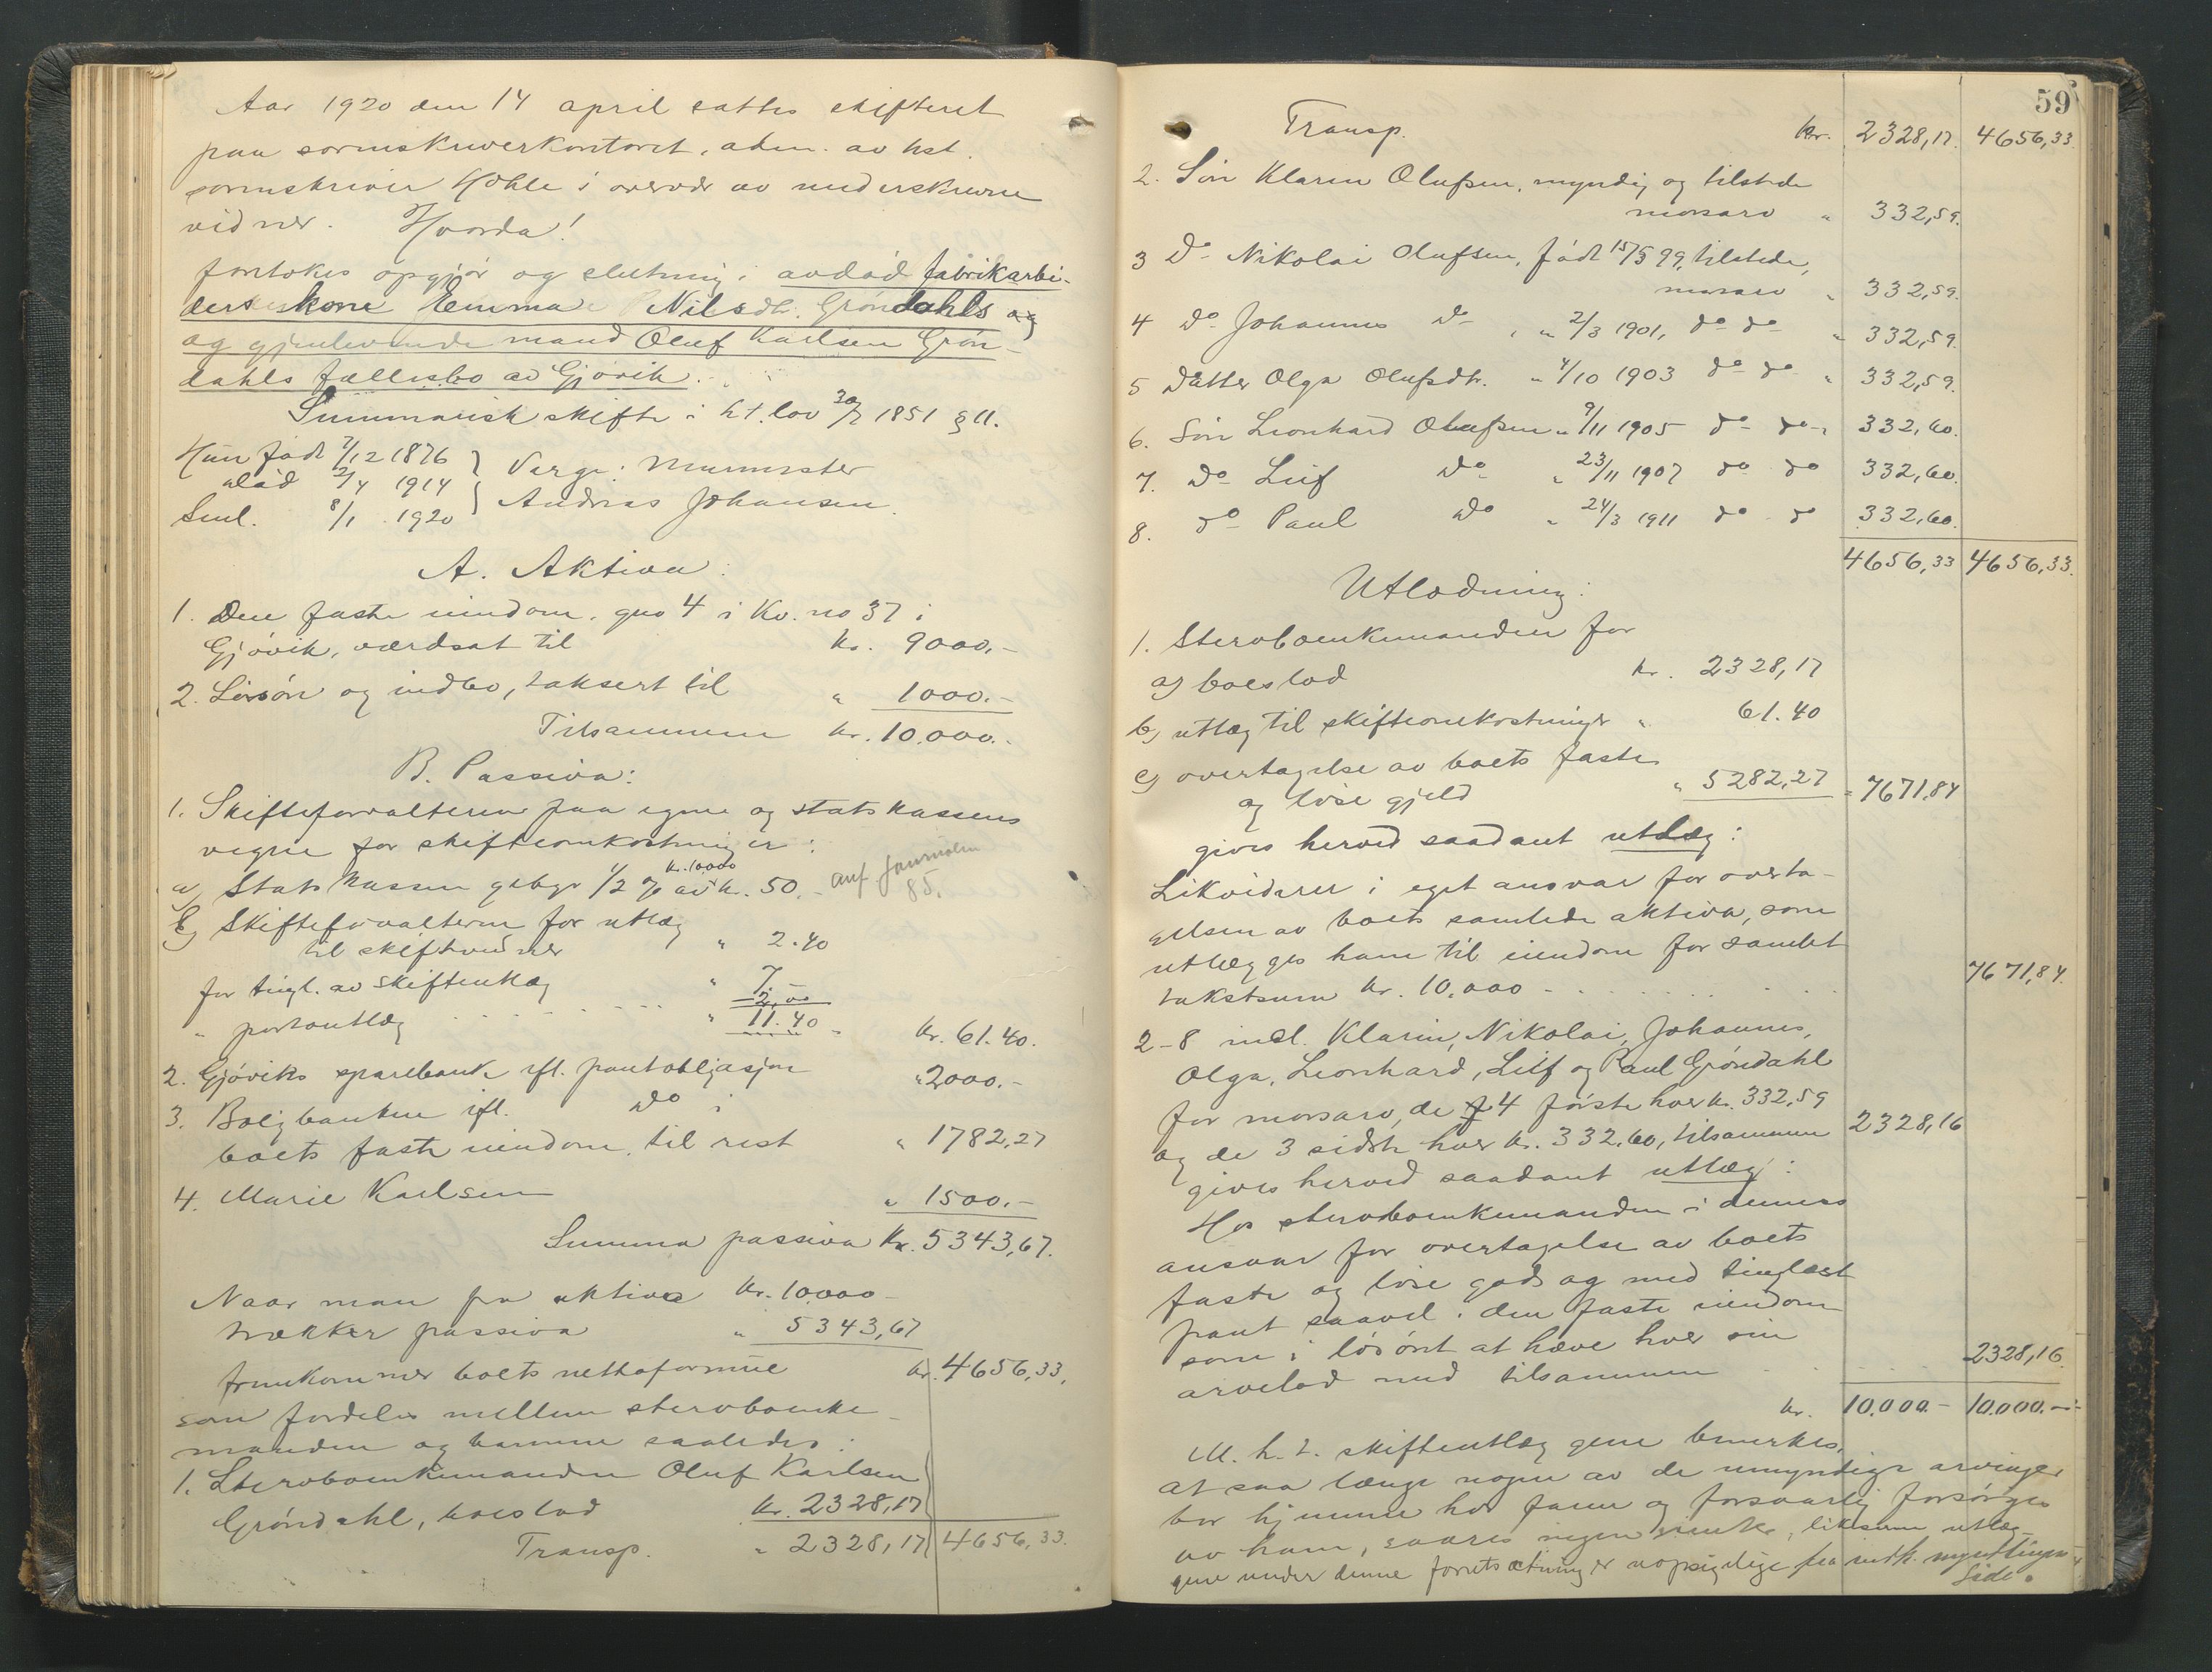 Aar 1920 den 14 april sattes skifteret
paa sorenskriverkontoret, adm. av kst.
sorenskriver Hohle i overvær av underskrevne
vidner. Hvorda!
foretokes opgjør og slutning i avdød fabrikarbei-
derskone Emma Nilsdtr. Grøndahls og
og gjenlevende mand Oluf Karlsen Grøn-
dahls fællesbo av Gjøvik.
Summarisk skifte i h.t. lov 30/7 1851 § 11.
Hun født 7/12 1876 } Verge: Murmester
død 2/4 1914 } Andreas Johansen.
Saml. 8/1 1920
A. Aktiva:
1. Den faste eiendom, gno 4 i Kv. no 37 i
Gjøvik, værdsat til kr. 9000.-
2. Løsøre og indbo, taksert til " 1000.-
Tilsammen kr. 10.000.-
B. Passiva:
1. Skifteforvalteren paa egne og statskassens
vegne for skifteomkostninger:
a) Statskassen gebyr 1/2 % av kr. 10.000 kr. 50.- anf. Journalen
85.
b) Skifteforvalteren for utlæg
til skiftevidner " 2.40
for tingl. av skifteutlæg " 7.-
" portoutlæg " 2,00
" 11.40 kr. 61.40.
2. Gjøviks sparebank ifl. pantobligasjon " 2000.-
3. Boligbanken ifl. do i
boets faste eiendom, til rest " 1782,27
4. Marie Karlsen " 1500.-
Summa passiva kr. 5343,67.
Naar man fra aktiva kr. 10.000-
trækker passiva " 5343,67
fremkommer boets nettoformue kr. 4656,33,
som fordeles mellem stervboenke-
manden og barnene saaledes:
1. Stervboenkemanden Oluf Karlsen
Grøndahl, boeslod kr. 2328,17
Transp. " 2328,17 4656,33.
59
Transp. kr. 2328,17. 4656,33.
2. Søn Klaren Olufsen, myndig og tilstede
morsarv " 332,59.
3 Do Nikolai Olufsen, født 15/5 99, tilstede,
morsarv " 332,59.
4 Do Johannes Do, " 2/3 1901, do do " 332,59.
5 Datter Olga Olufsdtr. " 4/10 1903 do do " 332,59.
6. Søn Leonhard Olufsen " 9/11 1905 do do " 332,60.
7. Do Leif Do " 23/11 1907 do do 332,60.
8. do Paul Do " 24/3 1911 do do 332,60.
4656,33 4656,33.
Utlodning:
1. Stervboenkemanden for
a) boeslod kr. 2328,17
b) utlæg til skifteomkostninger " 61.40
c) overtagelse av boets faste
og løse gjeld " 5282,27 " 7671,84
gives herved saadant utlæg:
Likviderer i eget ansvar for overta-
gelsen av boets samlede aktiva, som
utlægges ham til eiendom for samlet
takstsum kr. 10.000 - 7671,84.
2-8 incl. Klaren, Nikolai, Johannes,
Olga, Leonhard, Leif og Paul Grøndahl
for morsarv, de 4 første hver kr. 332,59
og de 3 sidste hver kr. 332,60, tilsammen 2328,16
gives herved saadant utlæg:
Hos stervboenkemanden i dennes
ansvar for overtagelse av boets
faste og løse gods og med tinglæst
pant saavel i den faste eiendom
som i løsøret at hæve hver sin
arvelod med tilsammen 2328,16.
kr. 10.000.- 10.000.-
M. h. t. skifteutlæggene bemerkes,
at saa længe nogen av de umyndige arvinger
bor hjemme hos faren og forsvarlig forsørges
av ham, svares ingen rente, likesom utlæg-
gene under denne forutsætning er uopsigelige fra indtil myndlingens
side.